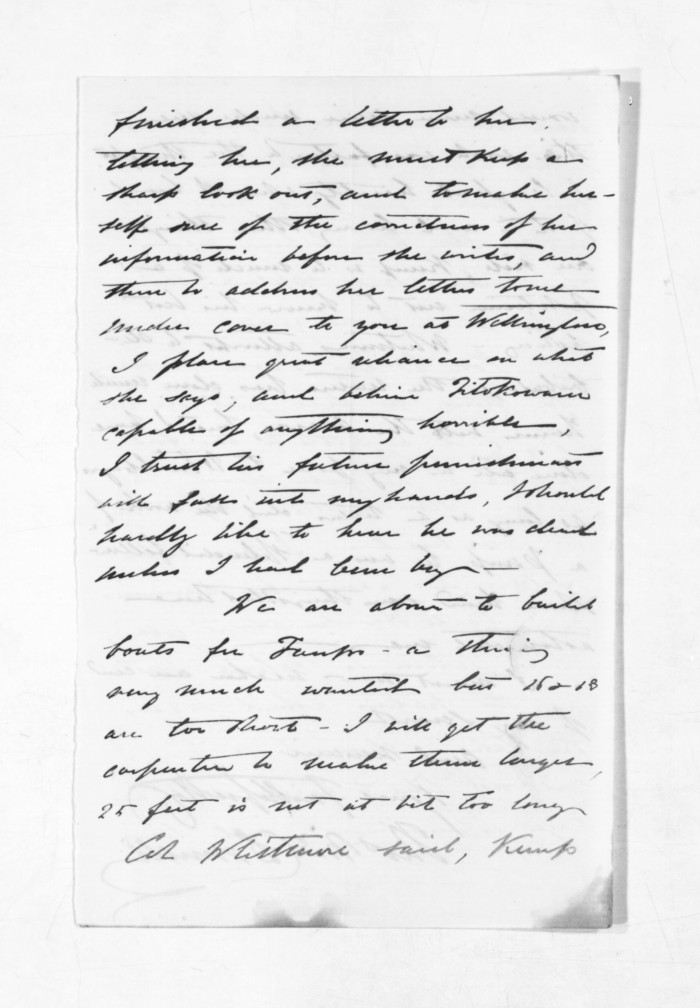 finished a letter to her.
telling her, she must keep a
sharp look out, and to make her-
self sure of the correctness of her
information before she writes, and
then to address her letters to me
under cover to you at Wellington,
I place great reliance on what
she says, and believe Titokowaru
capable of anything horrible,
I trust his future punishment
will fall into my hands, I should
hardly like to hear he was dead
unless I had been by —
We are about to build
boats for Taupo - a thing
very much wanted but 16 & 18
are too short - I will get the
carpenter to make them larger,
25 feet is not at bit too long
Col Whitmore said, Kemp